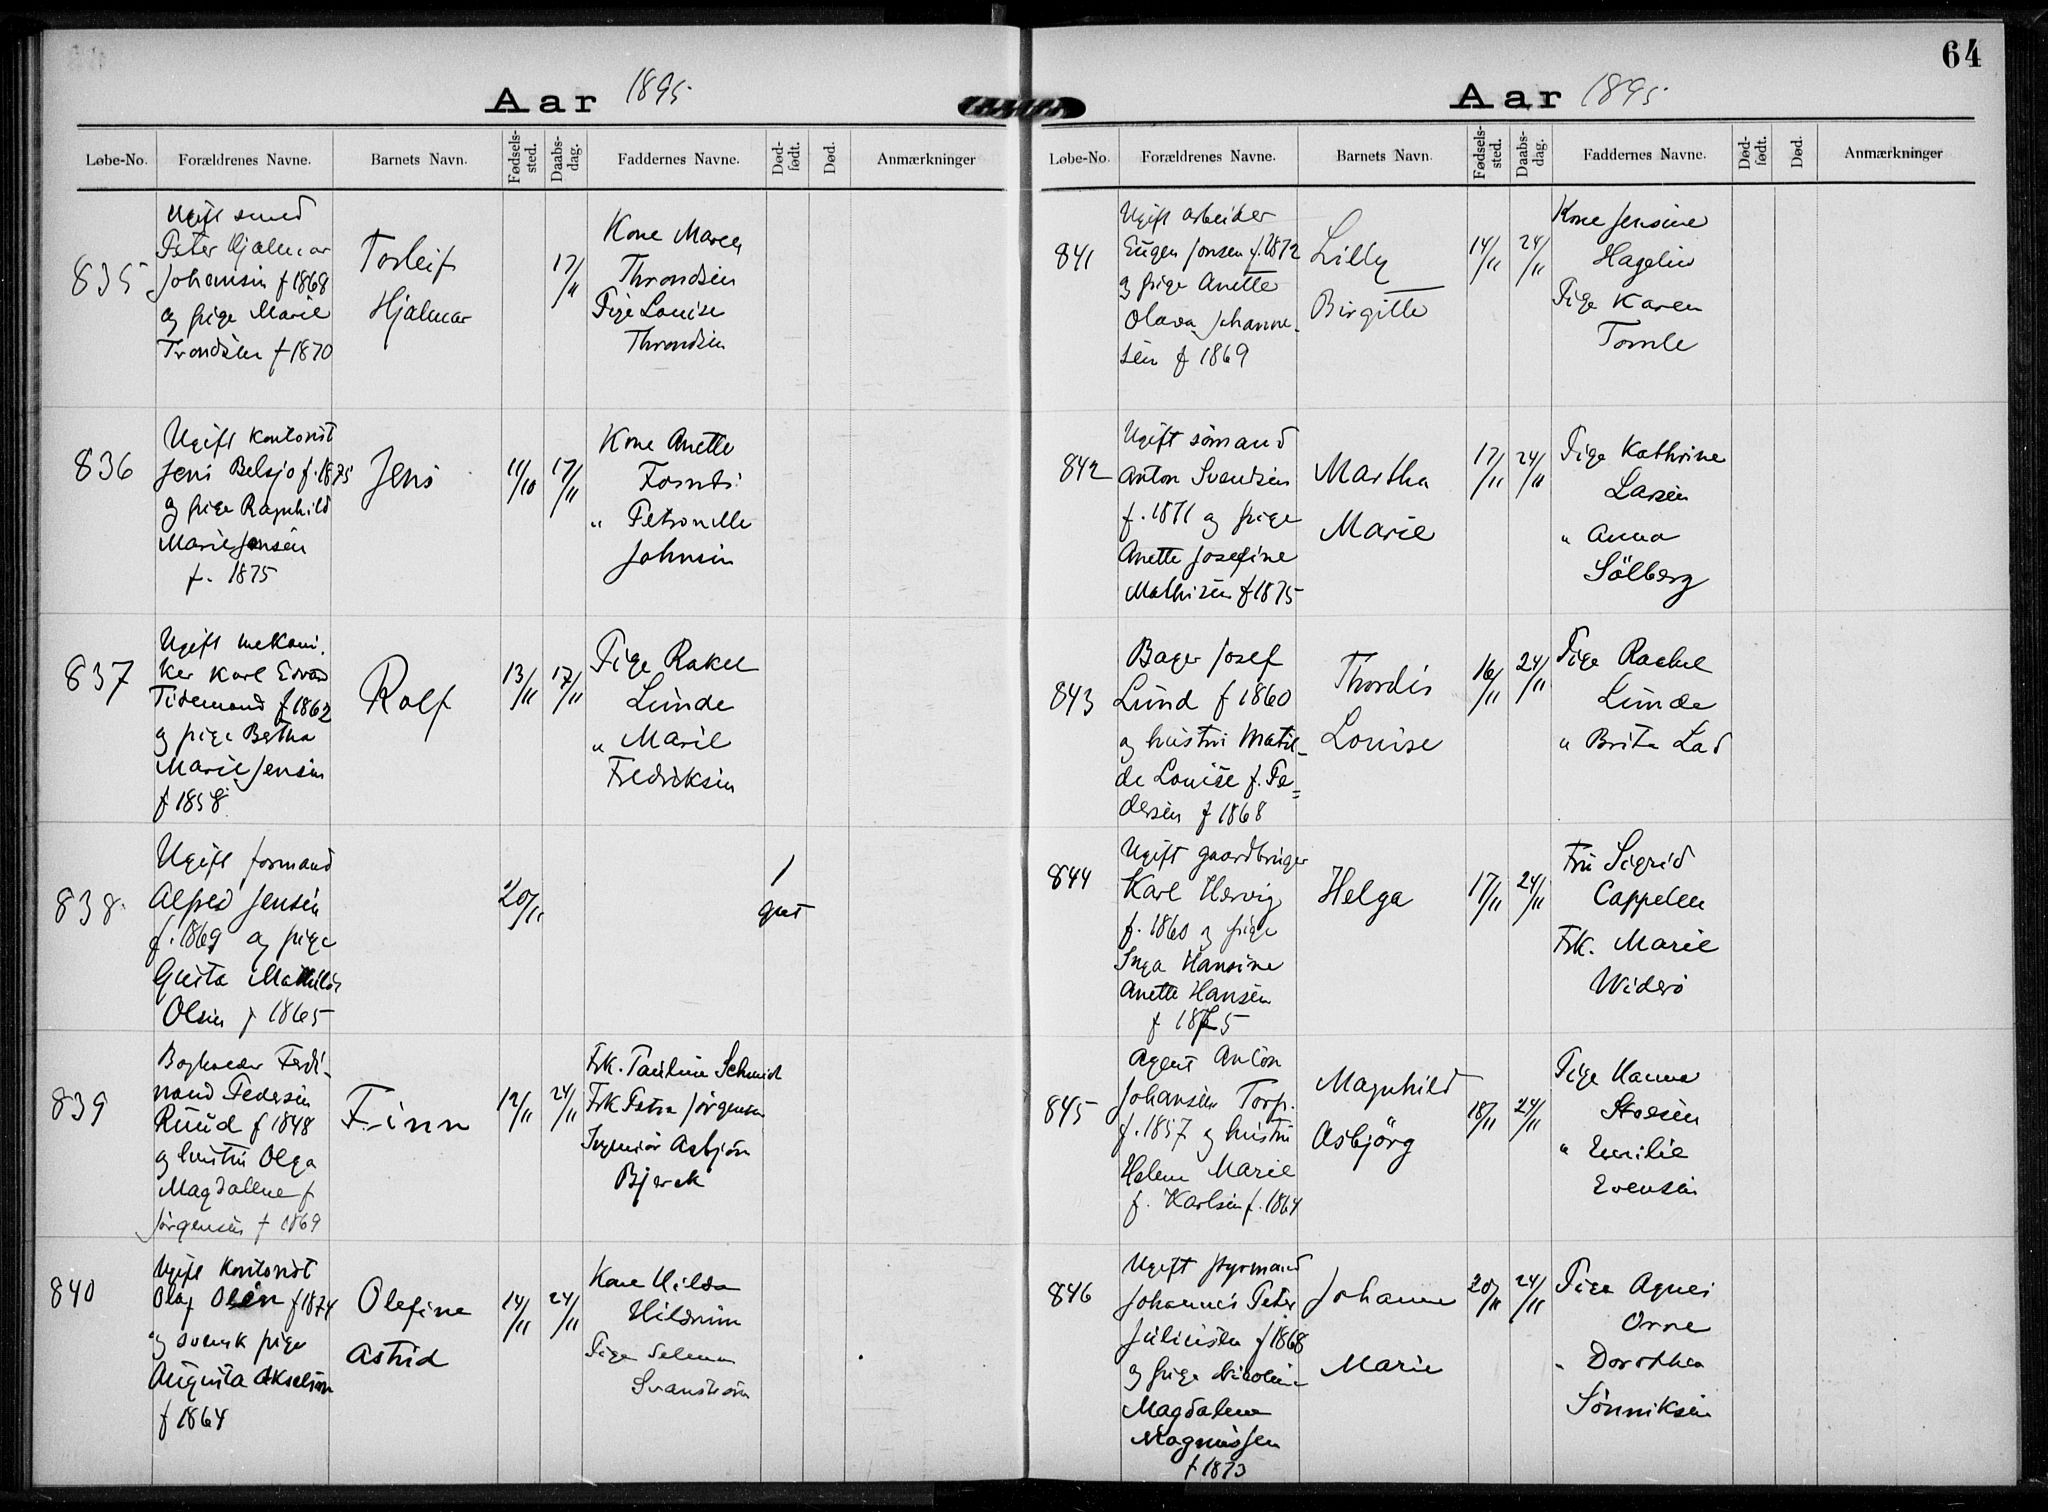 Aar 1895
Løbe-No. Forældrenes Navne. Barnets Navn. Fødsels-sted. Daabs-dag. Faddernes Navne. Død-født. Død. Anmærkninger
835
Ugift smed
Peter Hjalmar
Johansen f 1868
og pige Marie
Trondsen f 1870
Torleif
Hjalmar
17/11
Kone Maren
Throndsen
Pige Louise
Throndsen
836
Ugift kontorist
Jens Belsjo f. 1875
og pige Ragnhild
Marie Jensen
f. 1875
Jens
11/10
17/11
Kone Anette
" Petronelle
Johnsen
837
Ugift mekani.
ker Karl Edvard
Tidemand f 1862
og pige Bertha
Marie Jensen
f 1858
Rolf
13/11
17/11
Pige Rakel
Lunde
" Marie
Fredriksen
838.
Ugift formand
Alfred Jensen
f. 1869 og pige
Gusta Mathilde
Olsen f 1865
20/11
1
gut
839
Boghholder Ferdi-
nand Pedersen
Ruud f 1848
og hustru Olga
Magdalene f
Jørgensen f 1869
Finn
12/11
24/11
Frk. Pauline Schmidt
Frk Petra Jørgensen
Ingeniör Asbjörn
Bjerck
840
Ugift Kontorist
Olaf Olsen f 1874
og svensk pige
Augusta Akselson
f 1864
Olefine
Astrid
14/11
24/11
Kone Hilda
Hildrum
Pige Selema
Svanström
64
Aar 1895
Løbe-No. Forældrenes Navne. Barnets Navn. Fødsels-sted. Daabs-dag. Faddernes Navne. Død-født. Død. Anmærkninger
841
Ugift arbeider
Eugen Jonsen f. 1872
og pige Anette
Olava Johanne-
sen f 1869
Lilly
Birgitte
14/11
24/11
Kone Jensine
Hagelin
Pige Karen
Tomle
842
Ugift sömand
Anton Svendsen
f. 1871 og pige
Anette Josefine
Mathisen f 1875
Martha
Marie
17/11
24/11
Pige Kathrine
Larsen
" Anna
Sölberg
843
Bager Josef
Lund f 1860
og hustru Matil-
de Louise f. Pe=
dersen f 1868
Thordis
Louise
16/11
24/11
Pige Rachel
Lunde
" Brita Lad
844
Ugift gaardbruger
Karl Hervig
f. 1860 og pige
Inga Hansine
Anette Hansen
f 1875
Helga
17/11
24/11
Fru Sigrid
Cappelen
Frk. Marie
Widerö
845
Agent Anton
Johansen Torp.
f. 1857 og hustru
Helene Marie
f. Karlsen f. 1864
Magnhild
Asbjörg
18/11
24/11
Pige Hanna
" Emilie
Evensen
846
Ugift styrmand
Johannes Peter
Juliusen f 1868
og pige Nicoline
Magdalene
Magnussen
f 1873
Johanne
Marie
20/11
24/11
Pige Agnes
Orre
" Dorothea
Sönniksen